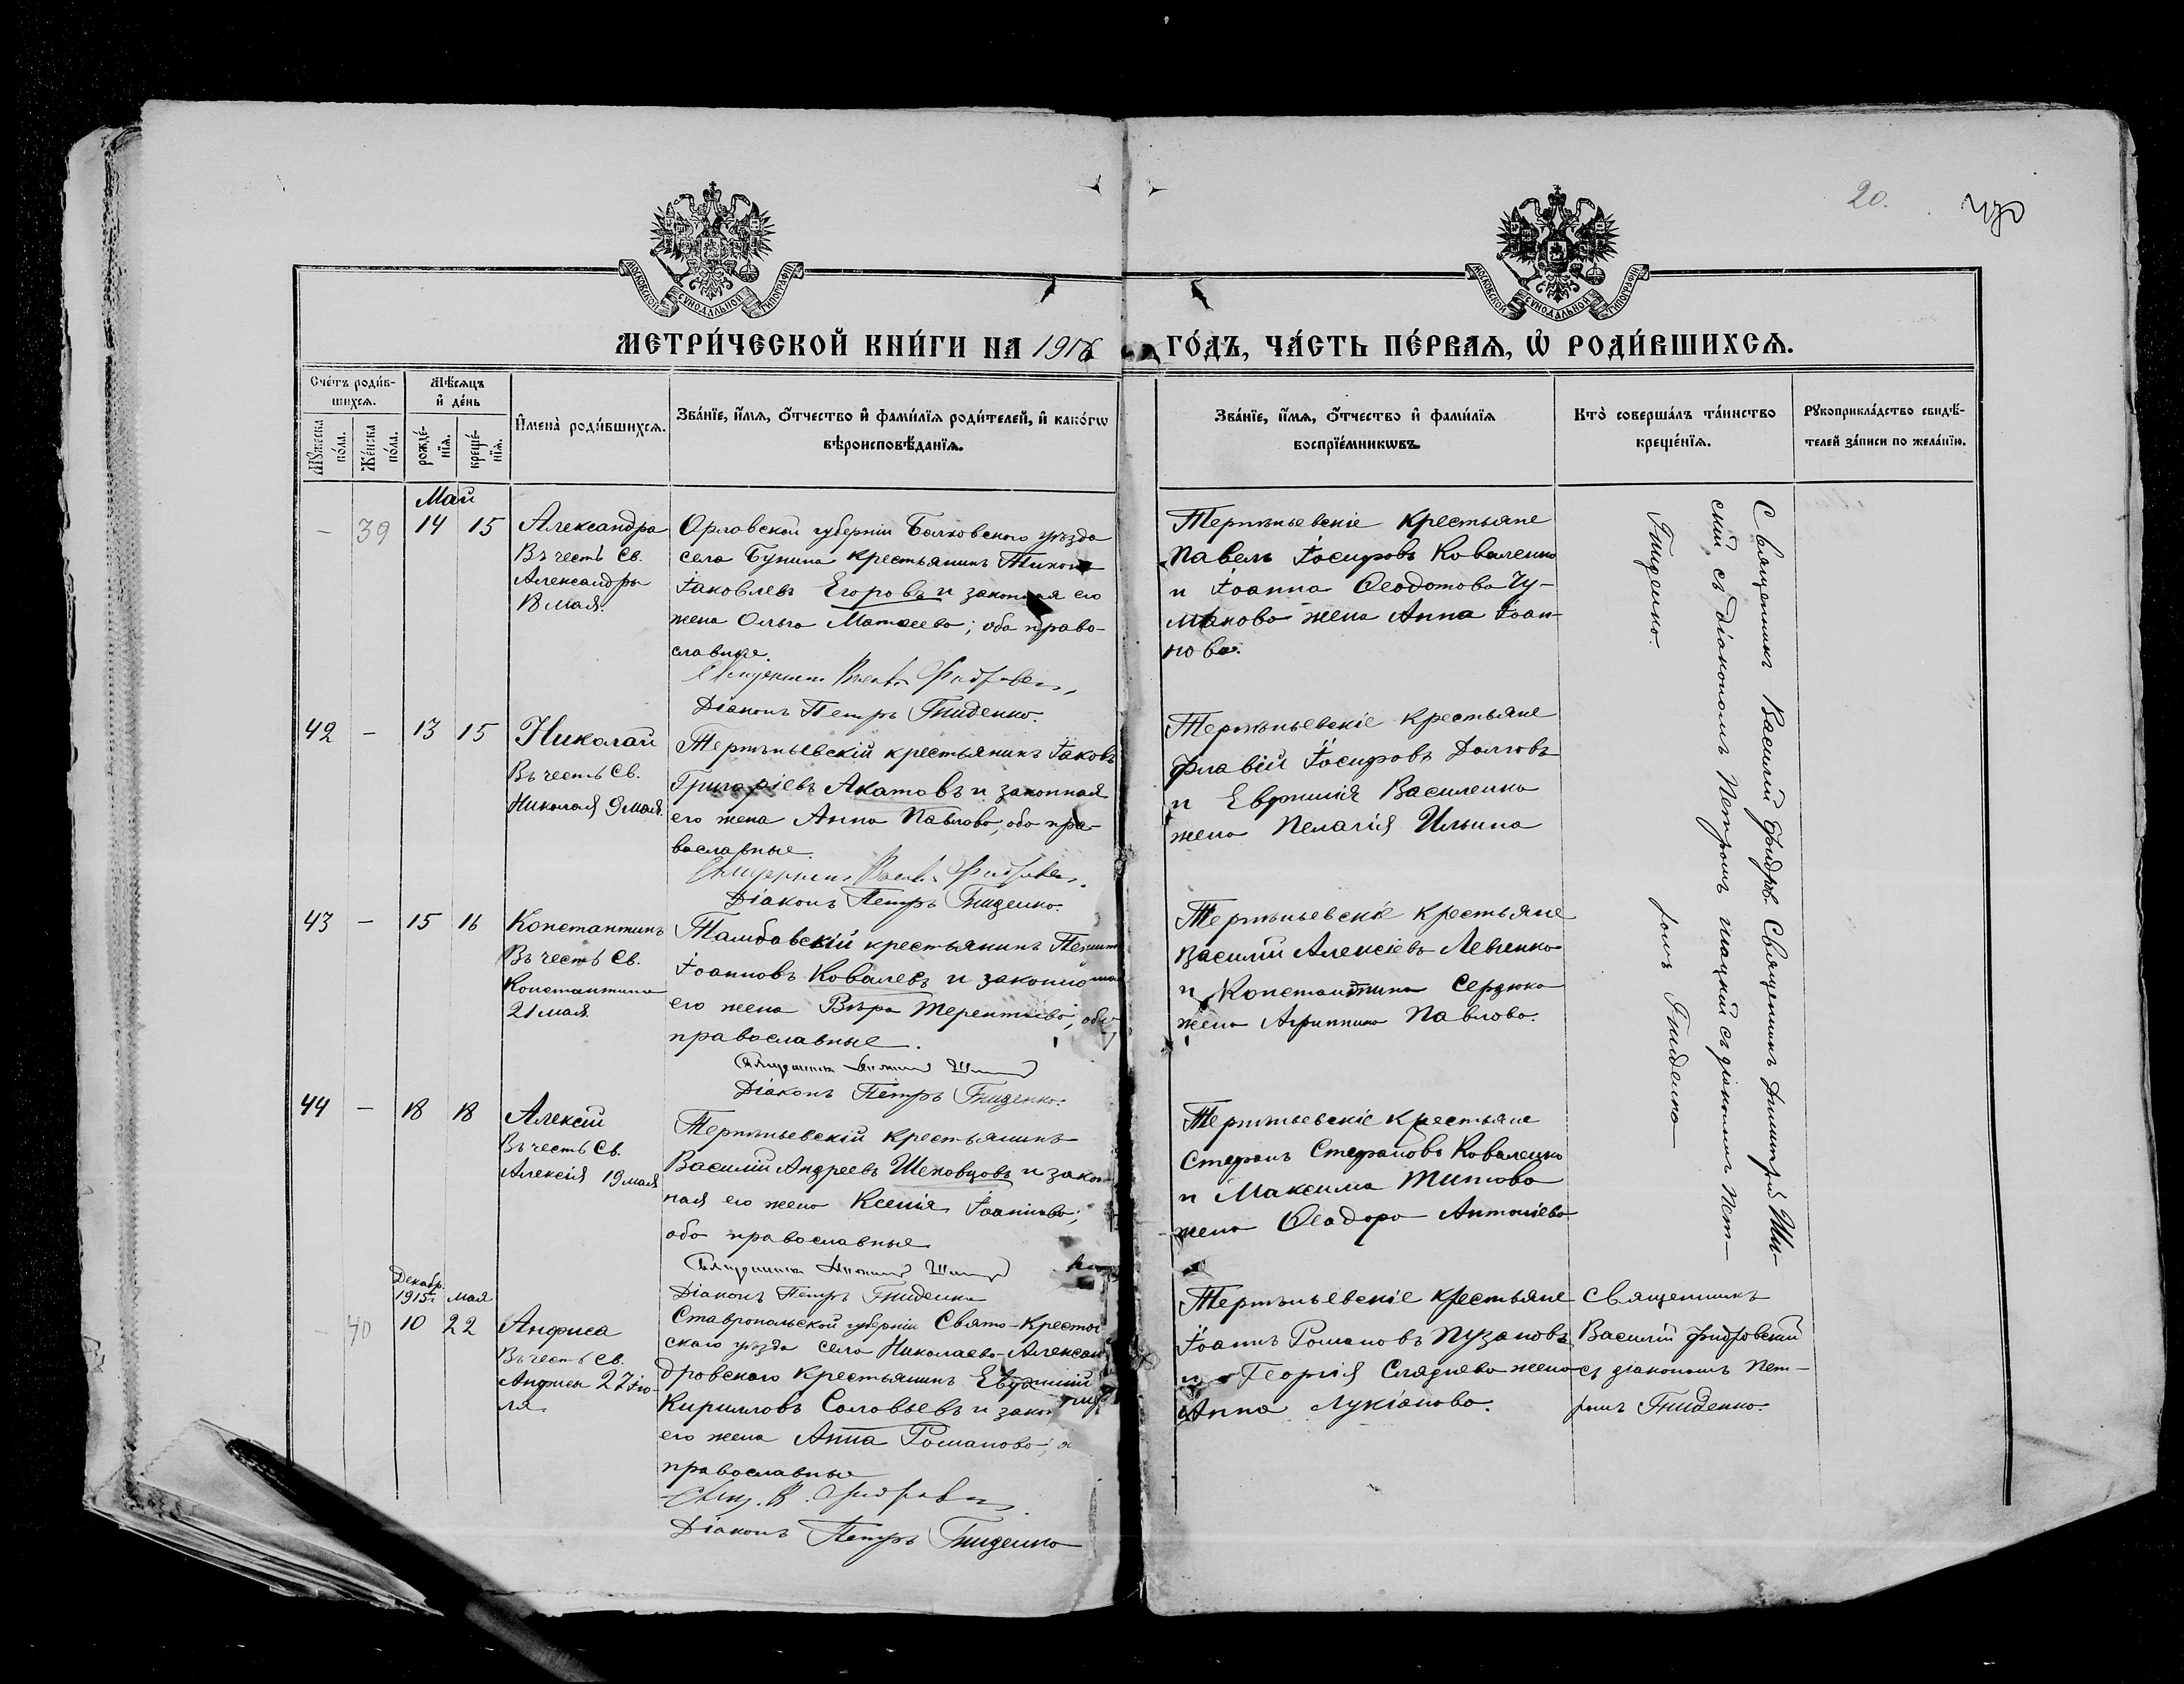 20.
МОСКОВСКОЙ СѴНОДАЛЬНОЙ ТИПОГРАФІИ
МОСКОВСКОЙ СѴНОДАЛЬНОЙ ТИПОГРАФІИ
МЕТРИ́ЧЕСКОЙ КНИ́ГИ НА 1916 ГО́ДЪ, ЧА́СТЬ ПЕ́РВАѦ, Ѡ҆ РОДИ́ВШИХСѦ.
Сче́тъ роди́в-
шихсѧ.
Мꙋ́жеска по́ла.
Же́нска по́ла.
Мѣ́сѧцъ
и҆ де́нь
рожде́-
нїѧ.
креще́-
нїѧ.
И҆мена̀ роди́вшихсѧ.
Зва́нїе, и҆́мѧ, ѻ҆́тчество и҆ фами́лїѧ роди́телей, и҆ како́гѡ
вѣроисповѣ́данїѧ.
Зва́нїе, и҆́мѧ, ѻ҆́тчество и҆ фами́лїѧ
воспрїе́мникѡвъ.
Кто̀ соверша́лъ та́инство
креще́нїѧ.
Рꙋкоприкла́дство свидѣ́-
телей за́писи по жела́нїю.
Май
– 39 14 15
Александра
Въ честь Св.
Александры
18 мая.
Орловской губерніи Болховского уѣзда
села Бунина крестьянинъ Тихонъ
Іаковлевъ Егоровъ и законная его
жена Ольга Матѳеева; оба право-
славные.
Діаконъ Петръ Гниденко.
Терпѣньевскіе крестьяне
Павелъ Іосифовъ Коваленко
и Іоанна Ѳеодотова Чу-
макова жена Анна Іоан-
нова.
Священникъ Василій Фидров-
скій съ діакономъ Петромъ
Гниденко.
42 – 13 15
Николай
Въ честь Св.
Николая 9 мая.
Терпѣньевскій крестьянинъ Іаковъ
Григоріевъ Акатовъ и законная
его жена Анна Павлова; оба пра-
вославные.
Діаконъ Петръ Гниденко.
Терпѣньевскіе крестьяне
Флавій Іосифовъ Долговъ
и Евфимія Василенка
жена Пелагія Ильина
43 – 15 16
Константинъ
Въ честь Св.
Константина
21 мая.
Тамбовскій крестьянинъ
Іоанновъ Ковалевъ и законная
его жена Вѣра Терентіева; оба
православные.
Діаконъ Петръ Гниденко.
Терпѣньевскіе крестьяне
Василій Алексіевъ Левченко
и Константина Сердюка
жена Агриппина Павлова.
Священникъ Димитрій Ши-
пацкій съ діакономъ Пет-
ромъ Гниденко
44 – 18 18
Алексій
Въ честь Св.
Алексія 19 мая
Терпѣньевскій крестьянинъ
Василій Андреевъ Шеховцовъ и закон-
ная его жена Ксенія Іоаннова;
оба православные
Діаконъ Петръ Гниденко
Терпѣньевскіе крестьяне
Стефанъ Стефановъ Коваленко
и Максима Титова
жена Ѳеодора Антоніева
Декабр.
1915 г. мая
– 40 10 22
Анфиса
Въ честь Св.
Анфисы 27 Ію-
ля.
Ставропольской губерніи Свято-Крестов-
скаго уѣзда села Николаево-Алексан-
дровскаго крестьянинъ Евфимій
Кирилловъ Соловьевъ и законная
его жена Анна Романова;
православные
Діаконъ Петръ Гниденко
Терпѣньевскіе крестьяне
Іоаннъ Романовъ Пузановъ
и Георгія Сляднева жена
Анна Лукіанова.
Священникъ
Василій Фидровскій
съ діакономъ Пет-
ромъ Гниденко.